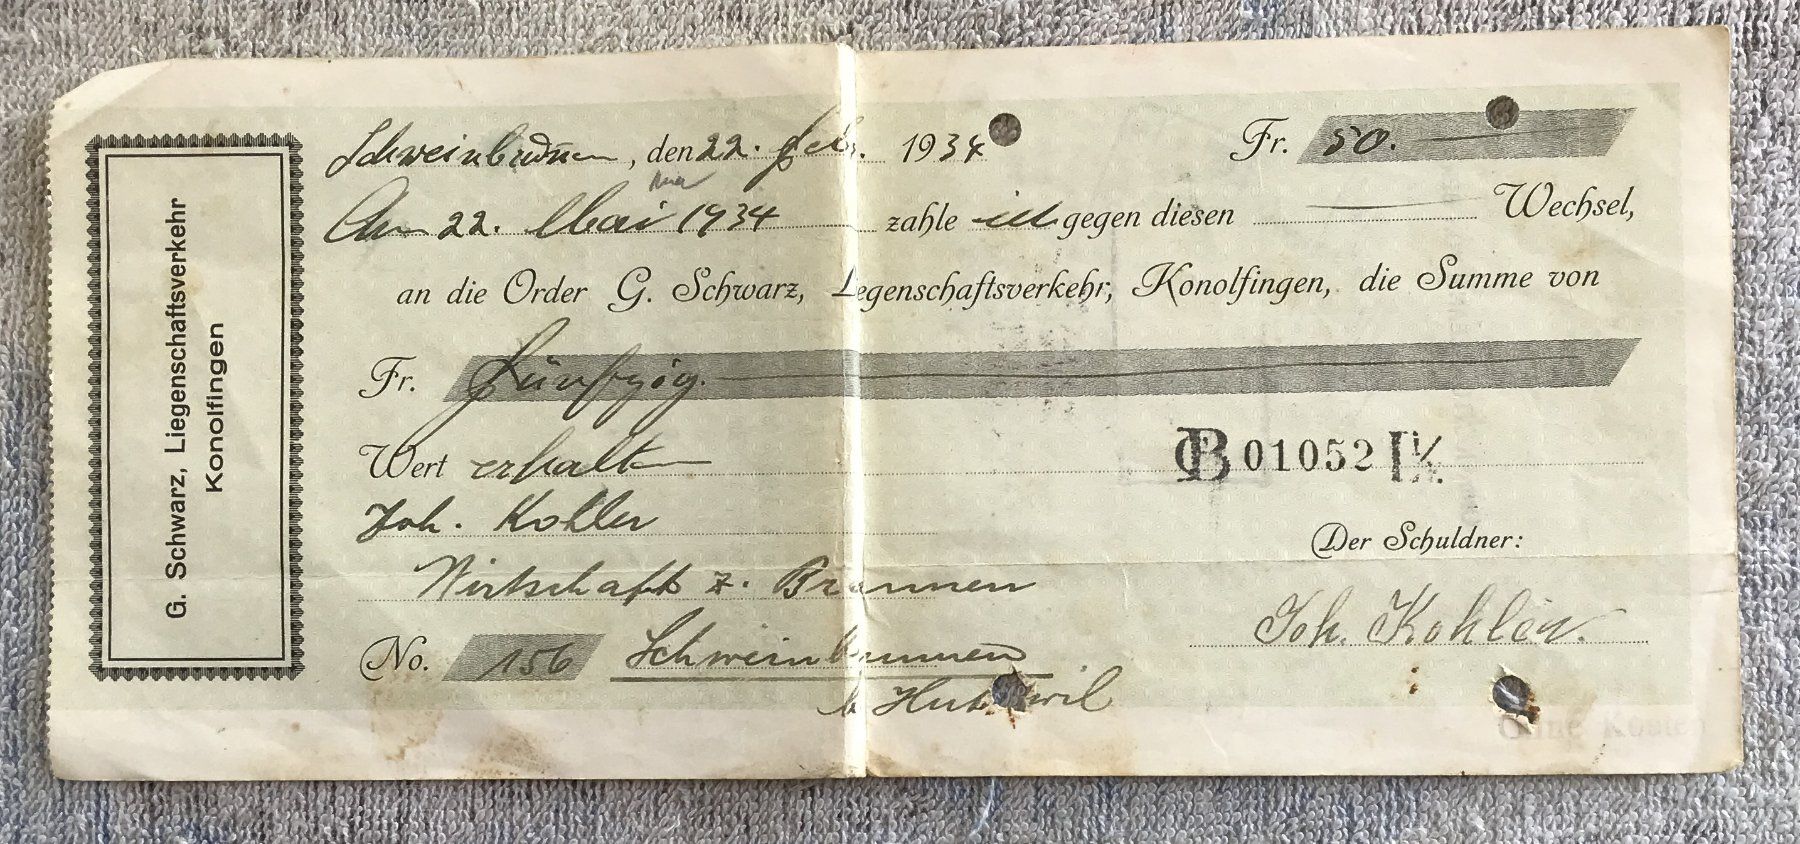 G. Schwarz, Liegenschaftsverkehr
Konolfingen
Schweinbrunnen, den 22. Feb. 1934 Fr. 50.
Am 22. Mai 1934 zahle ich gegen diesen Wechsel,
an die Order G. Schwarz, Liegenschaftsverkehr, Konolfingen, die Summe von
Fr. Fünfzig.
Wert erhalten B 01052
Joh. Kohler
Der Schuldner:
Wirtschaft z. Brunnen
Joh. Kohler.
No. 156 Schweinbrunnen
b. Huttwil
Ohne Kosten